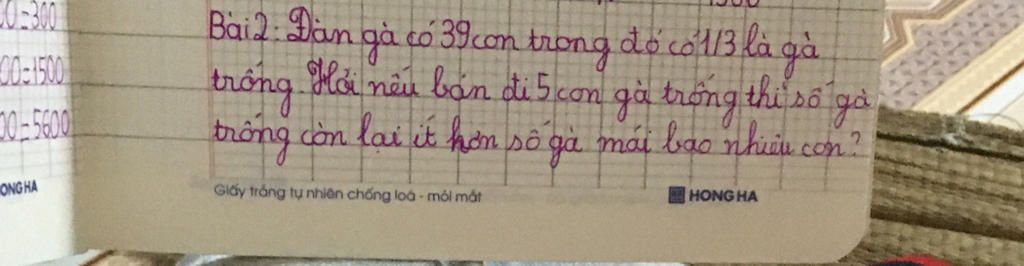 0=300
00=1500
00=5600
ONG HA
Bài 2: Đàn gà có 39 con trong đó có 1/3 là gà
trống. Hỏi nếu bán đi 5 con gà trống thì số gà
trống còn lại ít hơn số gà mái bao nhiêu con?
Giấy trắng tự nhiên chống loá - mỏi mắt
HONG HA